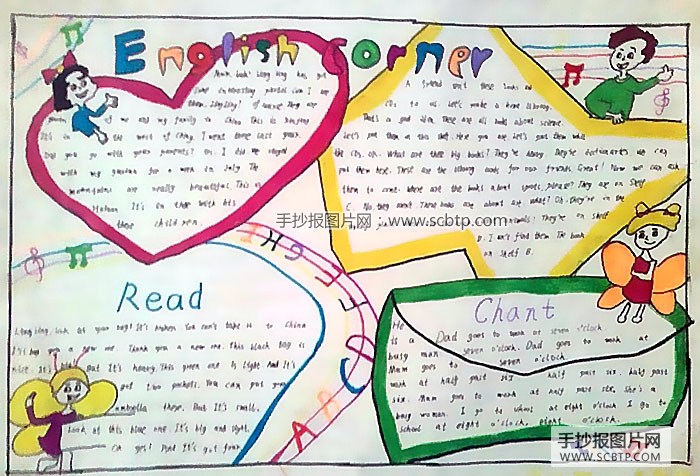 English corner
Mum, look! Ling Ling has got
some interesting postcards. Can I see
them, Lingling? Of course. They are
of me and my family in China. This is Xinjiang
It's in the west of China. I went there last year.
Did you go with your parents? No, I did. We stayed
with my grandma for a week in July. The
mountains are really beautiful. This is
Hainan. It's on there with his
these children.
A friend sent these books and
CDs to us. Let's make a home library.
That's a good idea. These are all books about science.
Let's put them on this shelf. Here you are. Let's put them with
the CDs, ok. What are these big books? They're heavy. They're dictionaries. We can
put them here. These are the library cards for our friends. Great! Now we can ask
them to come. Where are the books about sports, please? They are on Shelf
C. No, they aren't. These books are about art. What? Oh, they're in the
animals? They're on shelf
B. I can't find them. The book
on shelf B.
A B C D E F G H I K
Read
Lingling, look at your bag! It's broken. You can't take it to China
I'll buy you a new one. Thank you a new one. This black bag is
nice. It's But it's heavy. This green one is light. And it's
got two pockets. You can put your
umbrella there. But it's small.
Look at this blue one. It's big and light.
Oh yes! And it's got four
Chant
He
is a Dad goes to work at seven o'clock.
busy man seven o'clock. Dad goes to work at
Mum goes to seven o'clock
work at half past six. half past six, half past
six. Mum goes to work at half past six. She's a
busy woman. I go to school at eight o'clock I go to
school at eight o'clock, eight o'clock, eight o'clock.
手抄报图片网：www.scbtp.com
手抄报图片网
WWW.SCBTP.COM